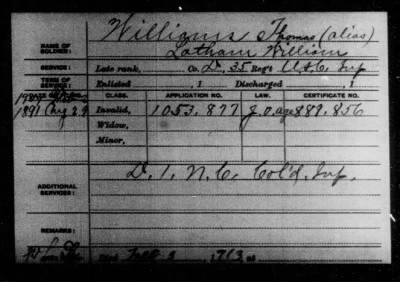 NAME OF SOLDIER: Williams Thomas (alias)
Latham William
SERVICE: Late rank, Co. D, 35 Reg't U.S.C. Inf
TERM OF SERVICE: Enlisted , 1 Discharged , 1
DATE OF FILING. CLASS. APPLICATION NO. LAW. CERTIFICATE NO.
1891 Aug 29 Invalid, 1053,877 889,856
Widow,
Minor,
ADDITIONAL SERVICES: D. 1. N.C. Col'd. Inf.
REMARKS:
Died 1913, at